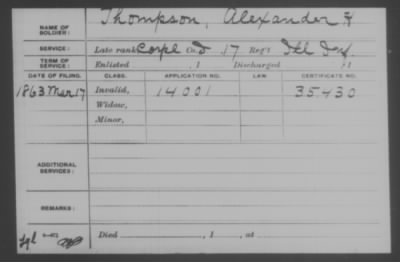 NAME OF SOLDIER: Thompson, Alexander H
SERVICE: Late rank Corpl Co. D 17 Reg't Ill Inf.
TERM OF SERVICE: Enlisted , 1 Discharged , 1
DATE OF FILING. CLASS. APPLICATION NO. LAW. CERTIFICATE NO.
1863 Mar 17 Invalid, 14001 35430
Widow,
Minor,
ADDITIONAL SERVICES:
REMARKS:
Died , 1 , at